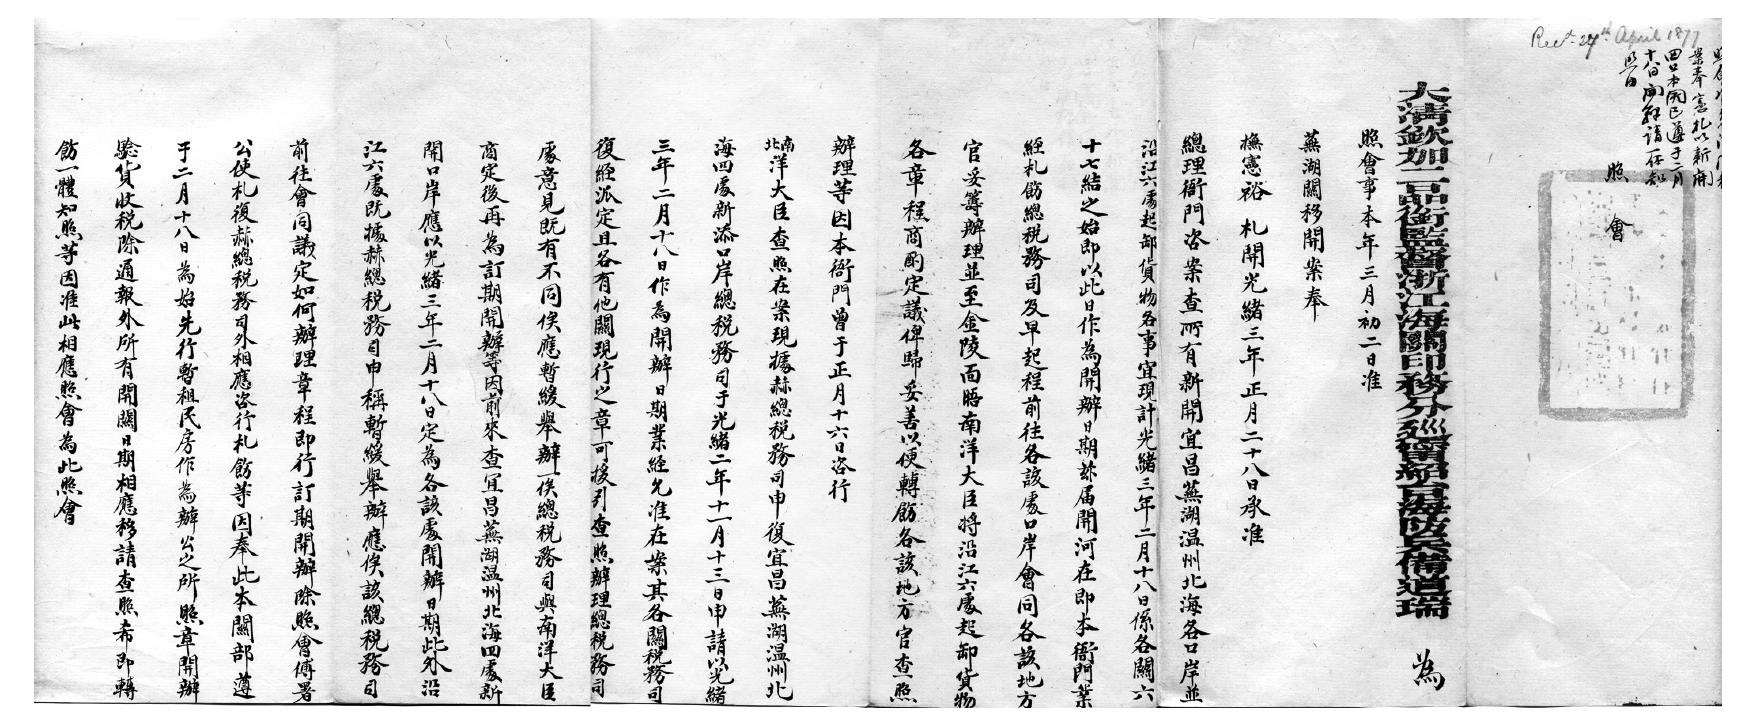 Recd. 24th April 1877
案奉憲札以新開
四口本關已遵于二月
十八日開辦請一体知
照由
照會
大清欽加二品銜監督浙江海關印務分巡甯紹台海防兵備道瑞 為
照會事本年三月初二日准
蕪湖關移開案奉
撫憲裕 札開光緒三年正月二十八日承准
總理衙門咨案查所有新開宜昌蕪湖溫州北海各口岸並
沿江六處起卸貨物各事宜現計光緒三年二月十八日係各關六
十七結之始即以此日作為開辦日期茲屆開河在即本衙門業
經札飭總稅務司及早起程前往各該處口岸會同各該地方
官妥籌辦理並至金陵面晤南洋大臣將沿江六處起卸貨物
各章程商酌定議俾歸妥善以便轉飭各該地方官查照
辦理等因本衙門曾于正月十六日咨行
南北洋大臣查照在案現據赫總稅務司申復宜昌蕪湖溫州北
海四處新添口岸總稅務司于光緒二年十一月十三日申請以光緒
三年二月十八日作為開辦日期業經允准在案其各關稅務司
復經派定且各有他關現行之章可援引查照辦理總稅務司
處意見既有不同俟應暫緩舉辦一俟總稅務司與南洋大臣
商定後再為訂期開辦等因前來查宜昌蕪湖溫州北海四處新
開口岸應以光緒三年二月十八日定為各該處開辦日期此外沿
江六處既據赫總稅務司申稱暫緩舉辦應俟該總稅務司
前往會同議定如何辦理章程即行訂期開辦除照會傅署
公使札復赫總稅務司外相應咨行札飭等因奉此本關部遵
于二月十八日為始先行暫租民房作為辦公之所照章開辦
驗貨收稅除通報外所有開關日期相應移請查照希即轉
飭一體知照等因准此相應照會為此照會